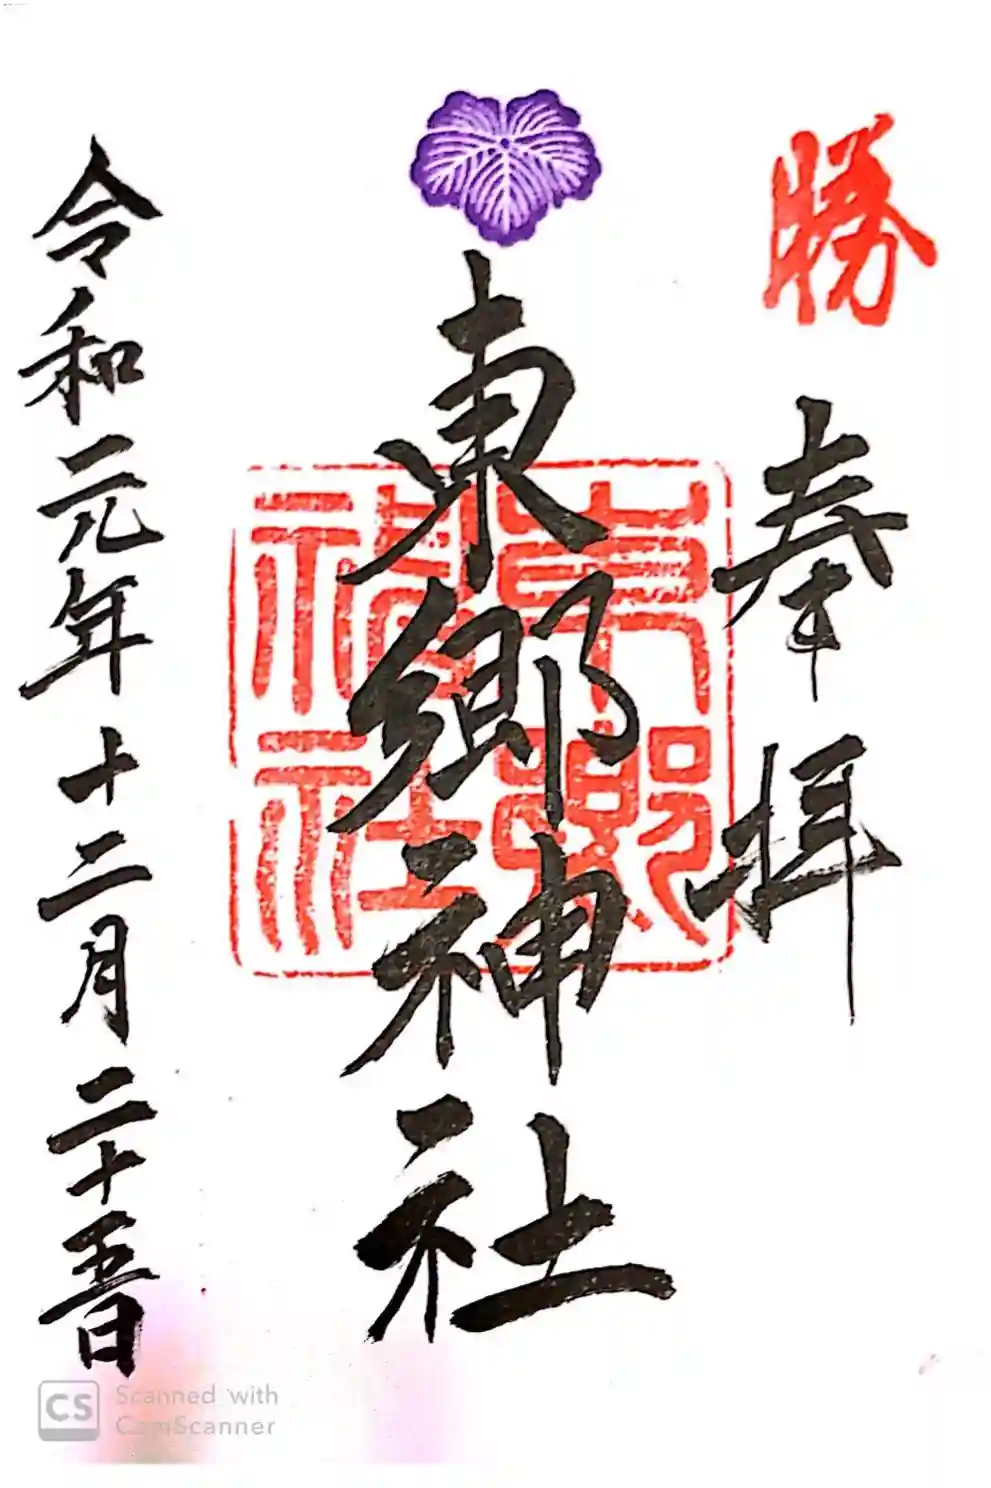 勝
奉拝
東郷神社
東郷
神社
令和元年十二月二十五日
CS Scanned with
CamScanner